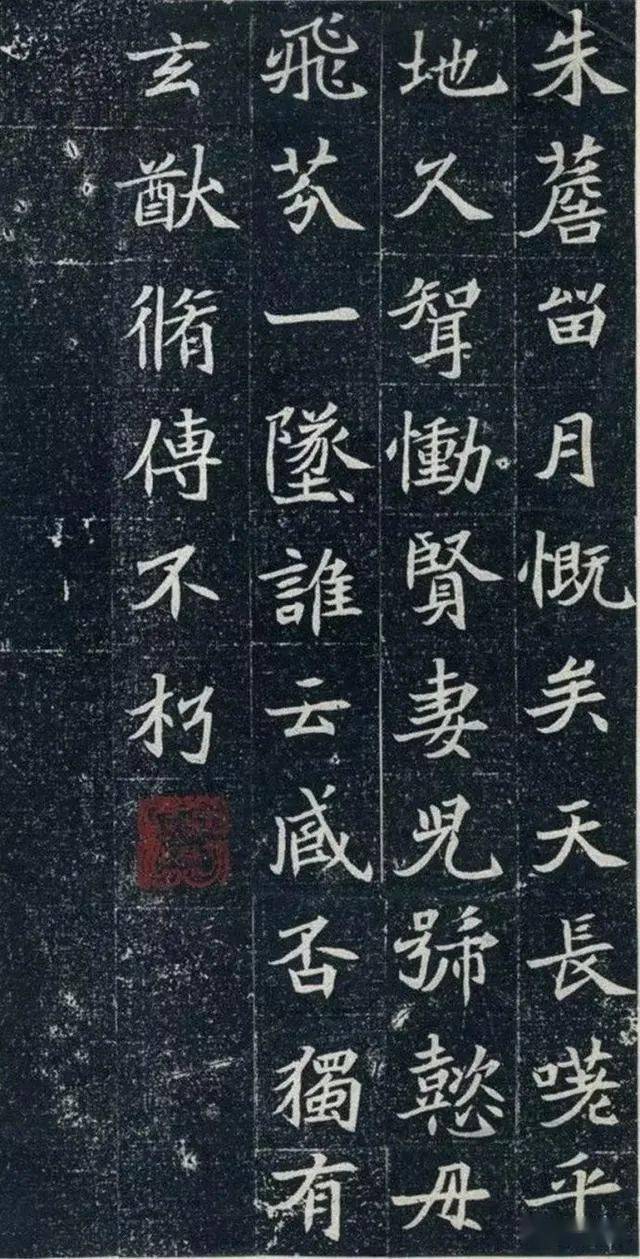 朱薝留月慨矣天長嗟乎
地久聲慟賢妻兒號懿母
飛芬一墜誰云臧否獨有
玄猷脩傳不朽